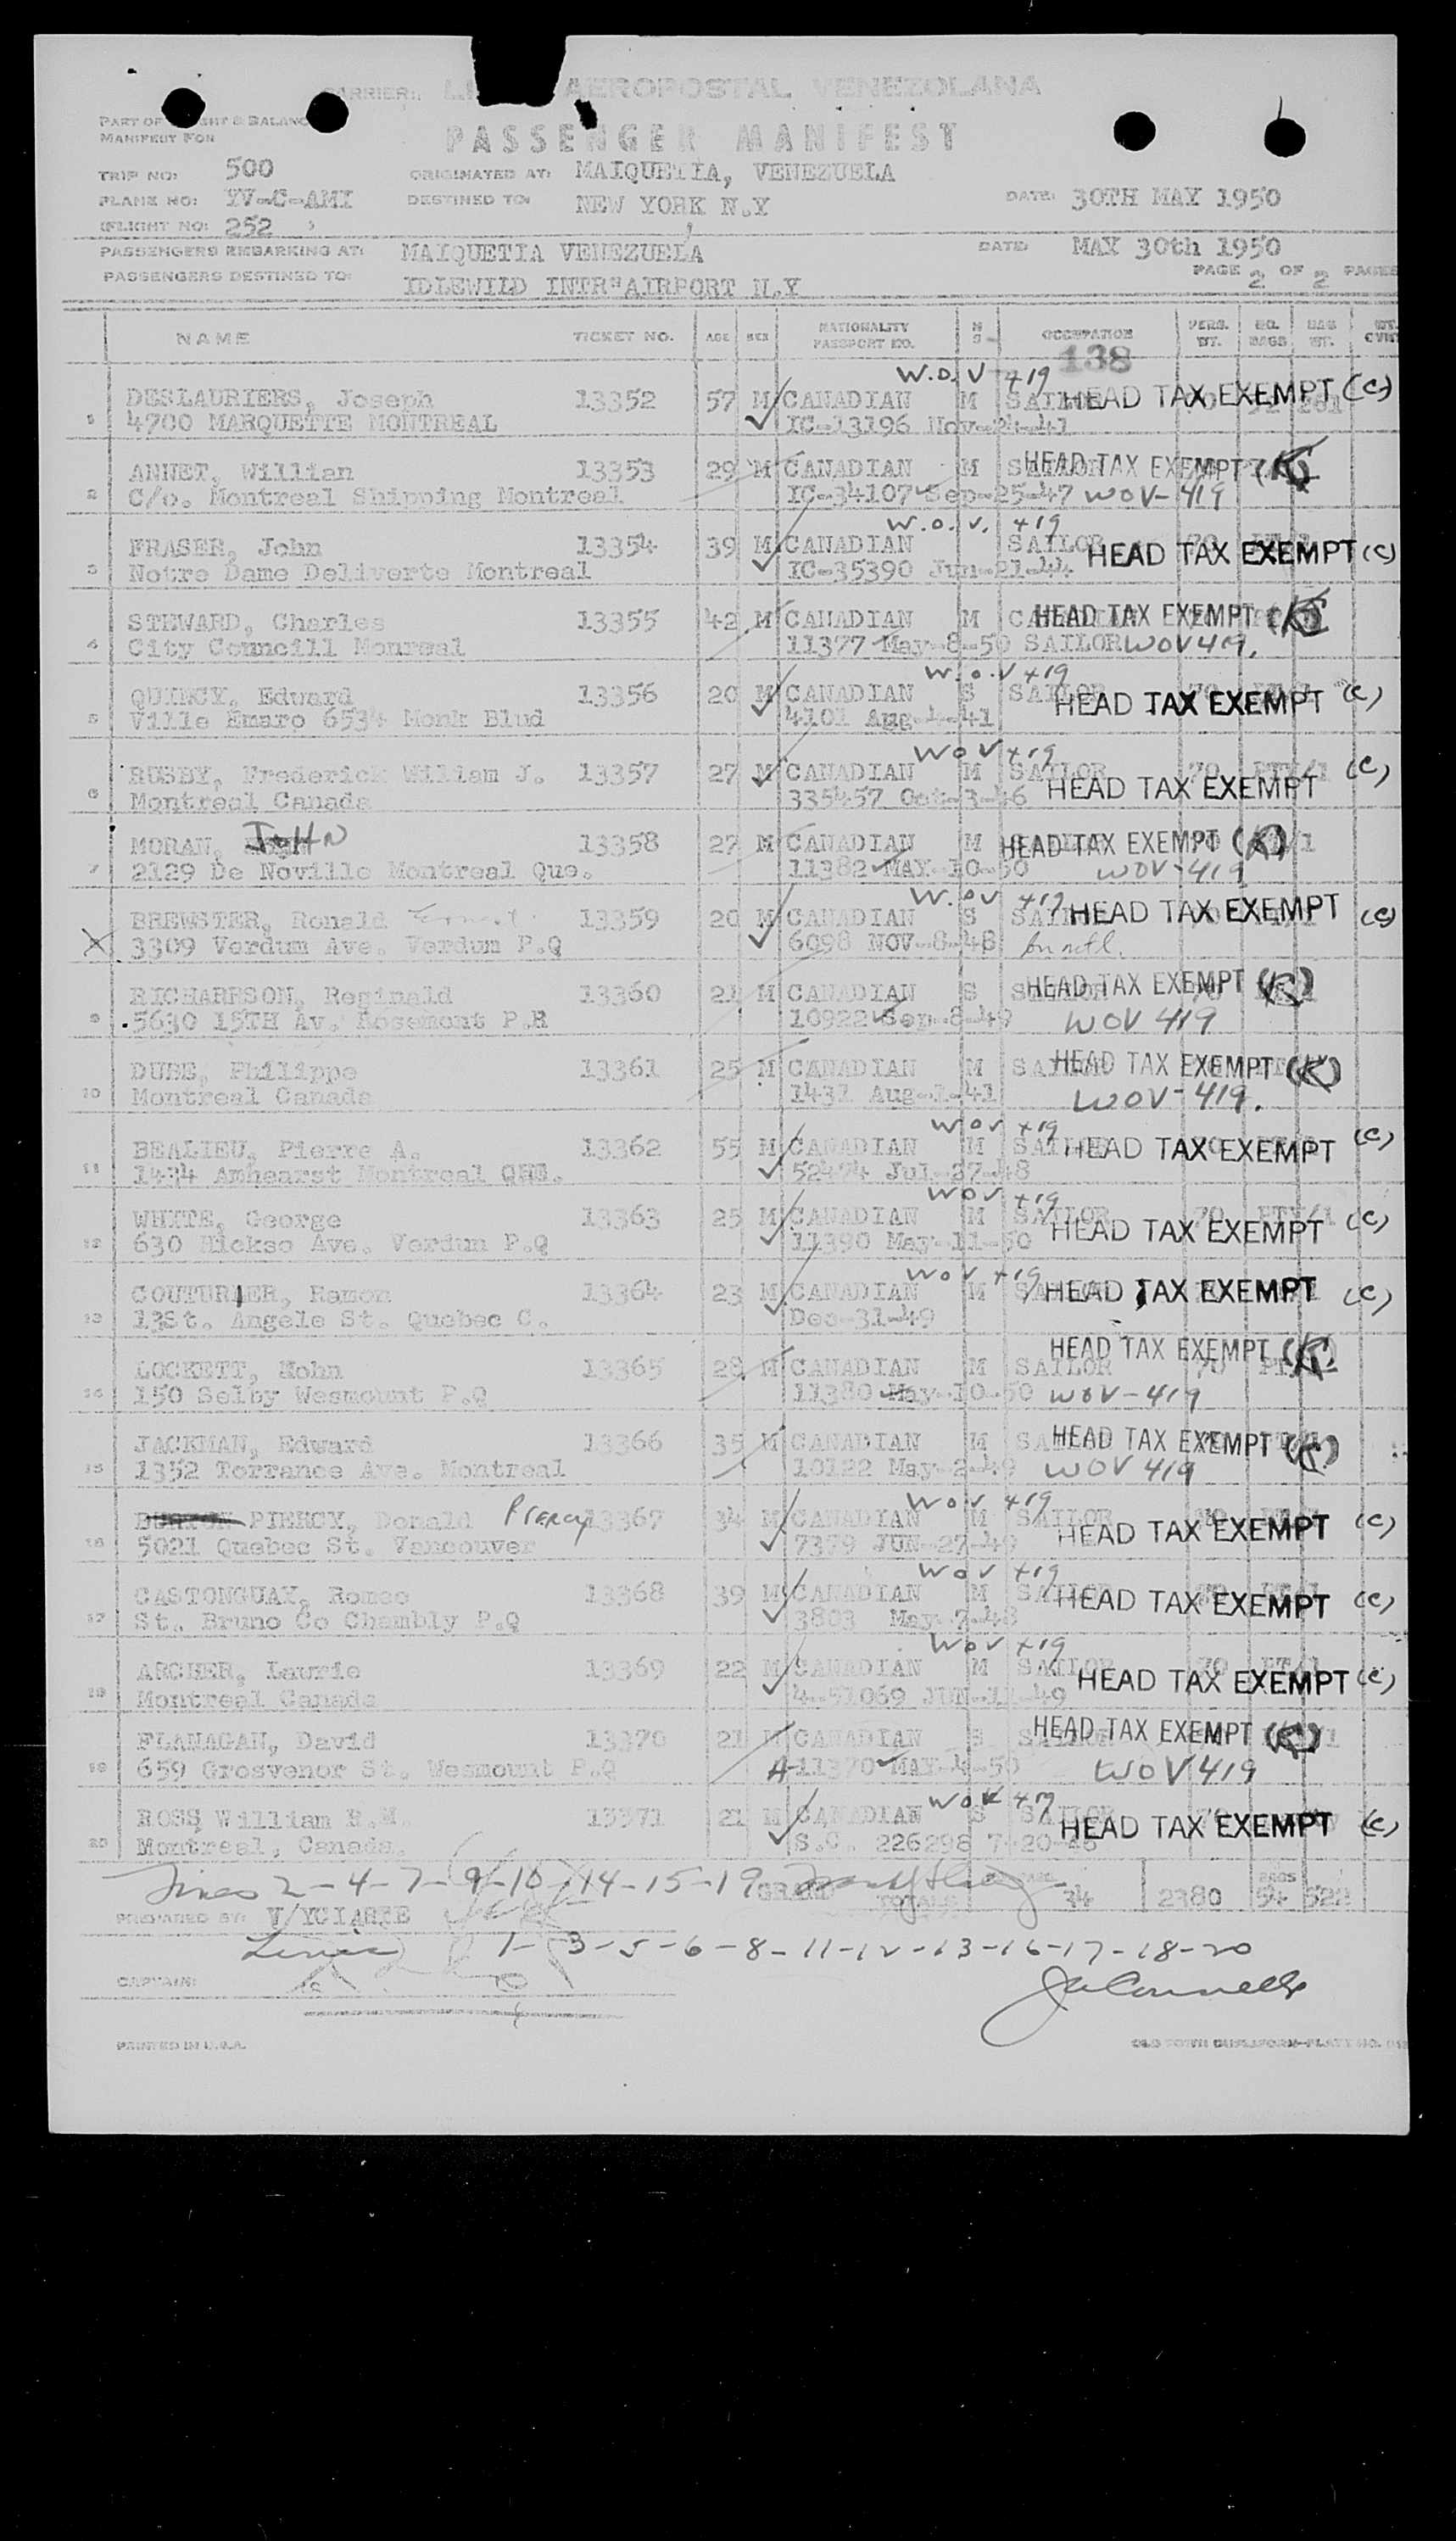 CARRIER: AEROPOSTAL VENEZOLANA
PART OF & BALANCE
MANIFEST FOR
PASSENGER MANIFEST
TRIP NO: 500 ORIGINATED AT: MAIQUETIA, VENEZUELA
PLANE NO: YV-C-AMI DESTINED TO: NEW YORK N.Y DATE: 30TH MAY 1950
(FLIGHT NO: 252 )
PASSENGERS EMBARKING AT: MAIQUETIA VENEZUELA DATE: MAY 30th 1950
PASSENGERS DESTINED TO: IDLEWILD INTR"AIRPORT N.Y PAGE 2 OF 2 PAGES
NAME TICKET NO. AGE SEX NATIONALITY PASSPORT NO. M S OCCUPATION PERS. WT. NO. BAGS BAG WT.
138
W.O.V 419
1 DESLAURIERS, Joseph 13352 57 M CANADIAN M SAILOR HEAD TAX EXEMPT (C)
4700 MARQUETTE MONTREAL IC-13196 Nov-24-41
2 ANNET, Willian 13353 29 M CANADIAN M HEAD TAX EXEMPT (K)
C/o. Montreal Shipping Montreal IC-34107 Sep-25-47 WOV-419
W.O.V. 419
3 FRASER, John 13354 39 M CANADIAN SAILOR 70 HEAD TAX EXEMPT (C)
Notre Dame Deliverte Montreal IC-35390 Jun-21-44
4 STEWARD, Charles 13355 42 M CANADIAN M HEAD TAX EXEMPT (K)
City Councill Monreal 11377 May-8-50 SAILOR WOV 419.
W.O.V 419
5 QUINCY, Edward 13356 20 M CANADIAN S SAILOR 70 HEAD TAX EXEMPT (C)
Ville Emaro 6534 Monk Blud 4101 Aug-4-41
WOV 419
6 RUSBY, Frederick Wiliam J. 13357 27 M CANADIAN M SAILOR 70 HEAD TAX EXEMPT (C)
Montreal Canada 335457 Oct-3-46
7 MORAN, JOHN 13358 27 M CANADIAN M HEAD TAX EXEMPT (K)
2129 De Noville Montreal Que. 11382 MAY-10-50 WOV-419
W.OV 419
BREWSTER, Ronald 13359 20 M CANADIAN S HEAD TAX EXEMPT (C)
X 3309 Verdum Ave. Verdum P.Q 6098 NOV-8-48
9 RICHARRSON, Reginald 13360 21 M CANADIAN S HEAD TAX EXEMPT (K)
5630 15TH Av. Rosemont P.R 10922 Sep-8-49 WOV 419
10 DUBE, Philippe 13361 25 M CANADIAN M HEAD TAX EXEMPT (K)
Montreal Canada 1431 Aug-1-41 WOV-419.
WOV 419
11 BEALIEU, Pierre A. 13362 55 M CANADIAN M HEAD TAX EXEMPT (C)
1434 Amhearst Montreal QUE. 52474 Jul-27-48
WOV 419
12 WHITE, George 13363 25 M CANADIAN M SAILOR 70 HEAD TAX EXEMPT (C)
630 Hickso Ave. Verdun P.Q 11390 May-11-50
WOV 419
13 COUTURIER, Ramon 13364 23 M CANADIAN M HEAD TAX EXEMPT (C)
13St. Angele St. Quebec C. Dec-31-49
14 LOCKETT, Nohn 13365 28 M CANADIAN M SAILOR 70 HEAD TAX EXEMPT (K)
150 Selby Wesmount P.Q 11380 May-10-50 WOV-419
15 JACKMAN, Edward 13366 35 M CANADIAN M HEAD TAX EXEMPT (K)
1352 Torrance Ave. Montreal 10122 May-2-49 WOV 419
WOV 419
16 BURTON PIERCY, Donald Piercy 13367 34 M CANADIAN M SAILOR 70 HEAD TAX EXEMPT (C)
5021 Quebec St. Vancouver 7379 JUN-27-49
WOV 419
17 CASTONGUAY, Romeo 13368 39 M CANADIAN M SAILOR HEAD TAX EXEMPT (C)
St. Bruno Co Chambly P.Q 3803 May-7-48
WOV 419
18 ARCHER, Laurie 13369 22 M CANADIAN M SAILOR 70 HEAD TAX EXEMPT (C)
Montreal Canada 4-51069 JUN-11-49
19 FLANAGAN, David 13370 21 M CANADIAN S HEAD TAX EXEMPT (K)
659 Grosvenor St. Wesmount P.Q A-11370 MAY-4-50 WOV 419
WOV 419
20 ROSS William R.M. 13371 21 M CANADIAN S SAILOR 70 HEAD TAX EXEMPT (C)
Montreal, Canada. S.C. 226298 7-20-46
Lines 2-4-7-9-10-14-15-19 GRAND TOTALS 34 2380 54 522
PREPARED BY: V/YCIARTE
Lines 1-3-5-6-8-11-12-13-16-17-18-20
CAPTAIN:
PRINTED IN U.S.A. OLD TOWN